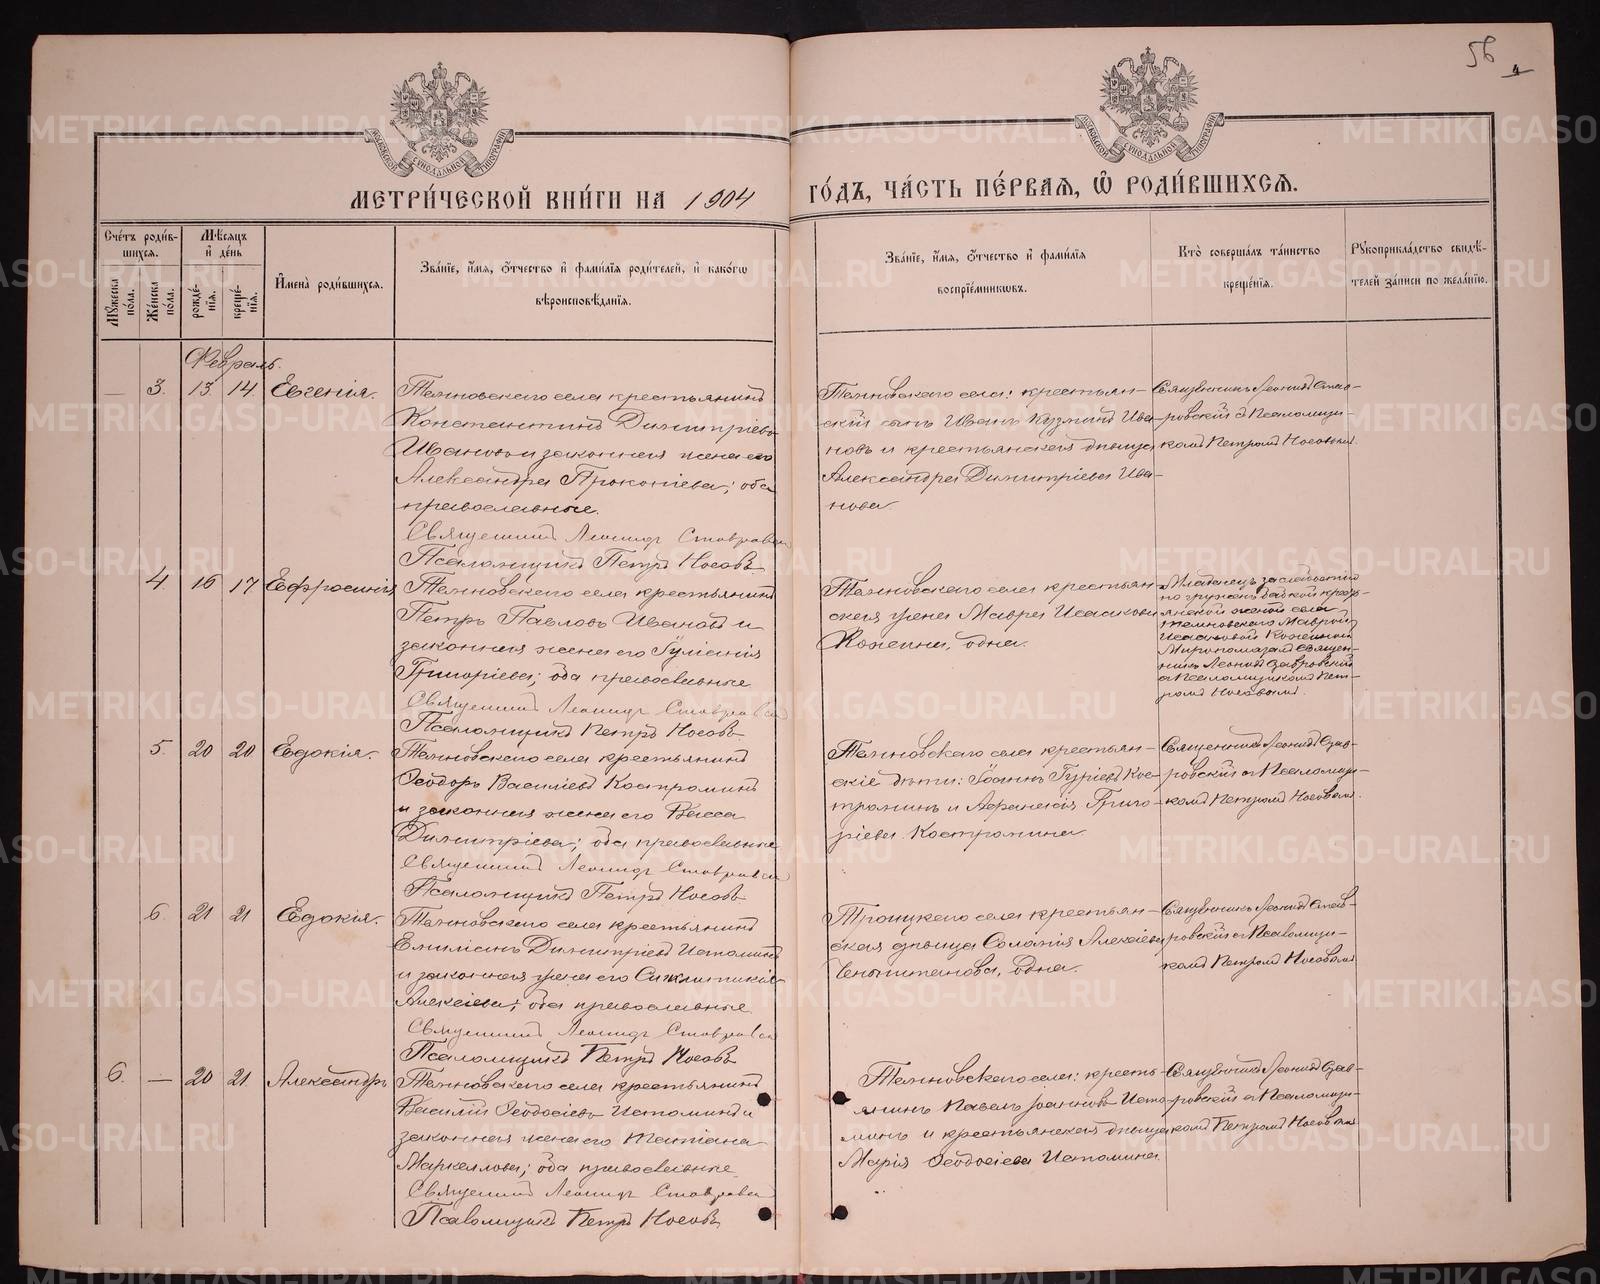 56
4
МОСКОВСКОЙ СѴНОДАЛЬНОЙ ТИПОГРАФІИ
МОСКОВСКОЙ СѴНОДАЛЬНОЙ ТИПОГРАФІИ
МЕТРИ́ЧЕСКОЙ КНИ́ГИ НА 1904
ГО́ДЪ, ЧА́СТЬ ПЕ́РВАѦ, Ѿ РОДИ́ВШИХСѦ.
Сче́тъ роди́в-
шихсѧ.
Мужеска по́ла.
Же́нска по́ла.
Мѣ́сѧцъ
и́ де́нь
рожде́-
нїѧ.
креще́-
нїѧ.
Имена̀ роди́вшихсѧ.
Зва́нїе, и́мѧ, ѻ́тчество и́ фами́лїѧ роди́телей, и́ како́гѡ
вѣроисповѣ́данїѧ.
Зва́нїе, и́мѧ, ѻ́тчество и́ фами́лїѧ
воспрїе́мникѡвъ.
Кто̀ соверша́лъ та́инство
креще́нїѧ.
Рукоприкла́дство свидѣ́-
телей за́писи по жела́нїю.
Февраль.
— 3. 13. 14. Евгенія.
Темновскаго села крестьянинъ
Константинъ Димитріевъ
Ивановъ и законная жена его
Александра Прокопіева; оба
православные.
Священникъ Леонидъ Ставровскій
Псаломщикъ Петръ Носовъ
Темновскаго села: крестьян-
скій сынъ Иванъ Кузминъ Ива-
новъ и крестьянская дѣвица
Александра Димитріева Ива-
нова.
Священникъ Леонидъ Став-
ровскій съ Псаломщи-
комъ Петромъ Носовымъ.
4. 16 17 Евфросинія
Темновскаго села крестьянинъ
Петръ Павловъ Ивановъ и
законная жена его Іуліанія
Григоріева; оба православные
Священникъ Леонидъ Ставровскій
Псаломщикъ Петръ Носовъ
Темновскаго села крестьян-
ская жена Мавра Исаакова
Кожина, одна.
Младенецъ за слабостію
погруженъ бабкой кресть-
янской женой села
Темновскаго Маврой
Исааковой Кожиной
Миропомазалъ Священ-
никъ Леонидъ Ставровскій
съ Псаломщикомъ Пет-
ромъ Носовымъ.
5. 20 20. Евдокія.
Темновскаго села крестьянинъ
Ѳеодоръ Василіевъ Костроминъ
и законная жена его Васса
Димитріева; оба православные
Священникъ Леонидъ Ставровскій
Псаломщикъ Петръ Носовъ
Темновскаго села крестьян-
скіе дѣти: Іоаннъ Гуріевъ Кос-
троминъ и Аѳанасія Григо-
ріева Костромина
Священникъ Леонидъ Став-
ровскій съ Псаломщи-
комъ Петромъ Носовымъ.
6. 21 21. Евдокія.
Темновскаго села крестьянинъ
Емиліанъ Димитріевъ Истоминъ
и законная жена его Синклитикія
Алексіева; оба православные
Священникъ Леонидъ Ставровскій
Псаломщикъ Петръ Носовъ
Троицкаго села крестьян-
ская дѣвица Соломія Алексіева
одна.
Священникъ Леонидъ Став-
ровскій съ Псаломщи-
комъ Петромъ Носовымъ
6. — 20 21. Александръ
Темновскаго села крестьянинъ
Василій Ѳеодосіевъ Истоминъ и
законная жена его Татіана
Маркеллова; оба православные
Священникъ Леонидъ Ставровскій
Псаломщикъ Петръ Носовъ
Темновскаго села: кресть-
янинъ Павелъ Іоанновъ Исто-
минъ и крестьянская дѣвица
Марія Ѳеодосіева Истомина
Священникъ Леонидъ Став-
ровскій съ Псаломщи-
комъ Петромъ Носовымъ
METRIKI.GASO-URAL.RU